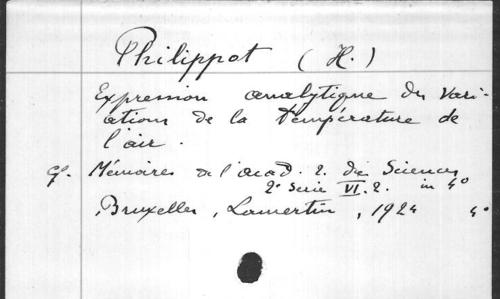 Philippot (H.)
Expression analytique des vari-
ations de la température de
l'air.
cf. Mémoires de l'acad. r. des Sciences
2e Serie VI. 2. in 4o
Bruxelles, Lamertin, 1924 4o